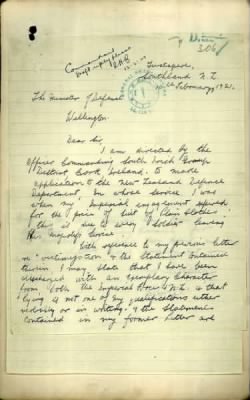 306
Tuatapere,
Southland N.Z
February 1921.
The Minister of Defence
Wellington.
Dear Sir,
I am directed by the
Officer Commanding South
District, to make
application to the New Zealand Defence
Department in whose service I was
when my Imperial engagement expired
for the price of suit of Plain Clothes
that is due to every Soldier leaving
His Majesty's Service.
With reference to my previous letter
the Statement contained
therein I may state that I have been
discharged with an Exemplary Character
from both the Imperial Forces & N.Z. so that
lying is not one of my qualifications either
verbally or in writing, & the Statements
contained in my former letter are